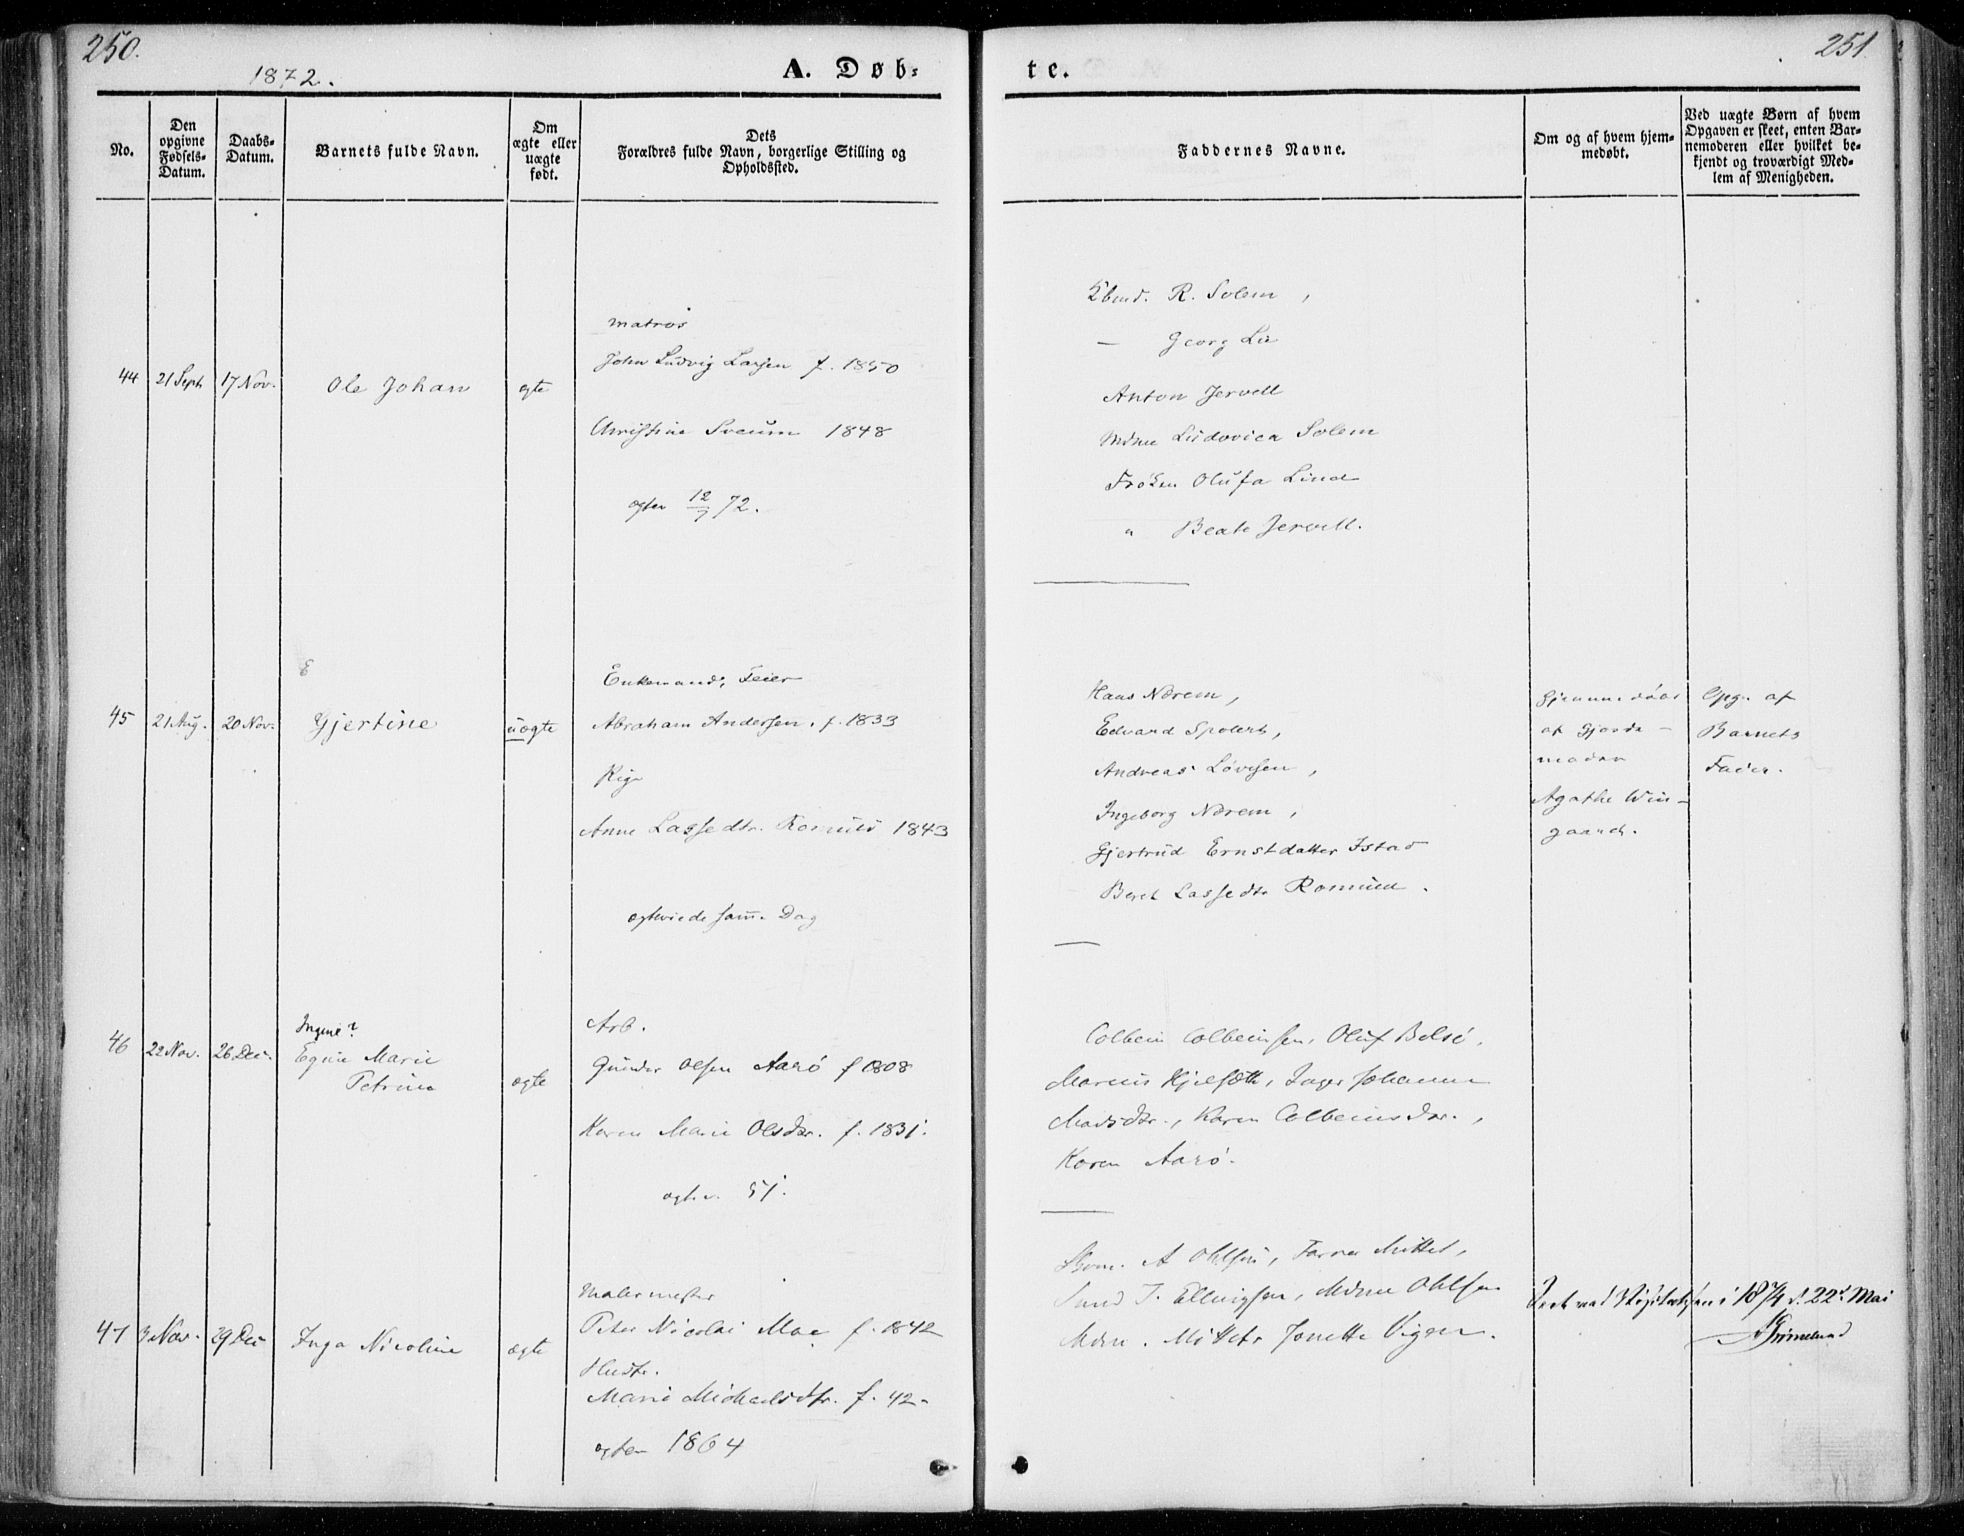 250.
1872.
A. Døb=
te.
251
No.
Den
opgivne
Fødsels-
Datum.
Daabs-
Datum.
Barnets fulde Navn.
Om
ægte eller
uægte
født.
Dets
Forældres fulde Navn, borgerlige Stilling og
Opholdssted.
Faddernes Navne.
Om og af hvem hjem-
medøbt.
Ved uægte Børn af hvem
Opgaven er skeet, enten Bar-
nemoderen eller hvilket be-
kjendt og troværdigt Med-
lem af Menigheden.
44
21 Sept
17 Nov.
Ole Johan
ægte
matros
John Ludvig Larsen f. 1850
Christine Sveum 1848
ægtev 12/7 72.
Kbmd. R. Solem,
— Georg Lie
Anton Jervell
Mdme Ludovica Solem
Frøken Olufa Lind
" Beate Jervell.
45
21 Aug.
20 Nov.
E
Gjertine
uægte
Enkemand, Feier
Abraham Andersen, f. 1833
Pige
Anne Lassedtr. Romuld 1843
ægteviede sam. Dag
Hans Nerem,
Edvard Spolert,
Andreas Lovisen,
Ingeborg Nerem,
Gjertrud Ernstdatter Istad
Beret Lassedtr Romuld.
Hjemmedøbt
af Gjorde-
moder
Agathe Win-
gaard.
Opg. af
Barnets
Fader.
46
22 Nov.
26 Dec.
Ingine?
Egine Marie
Petrine
ægte
Arb.
Gunder Olsen Aarø f 1808
Karen Marie Olsdtr. f. 1831.
ægtev. 51.
Colbein Colbeinsen, Oluf Bolsø,
Marius Hjelset, Inger Johanne
Madsdtr., Karen Colbeinsdtr.,
Karen Aarø.
47
3 Nov.
29 Dec
Inga Nicoline
ægte
Malermester
Peter Nicolai Moe f. 1842
Hustr.
Marie Michaelsdtr. f. 42.
ægtev 1864
A Ohlsen, Farver Mittet,
J. Ellingsen, Mdme Ohlsen
Mdm. Mittet, Jonette Vigger.
1874 d. 22de Mai
Grimelund